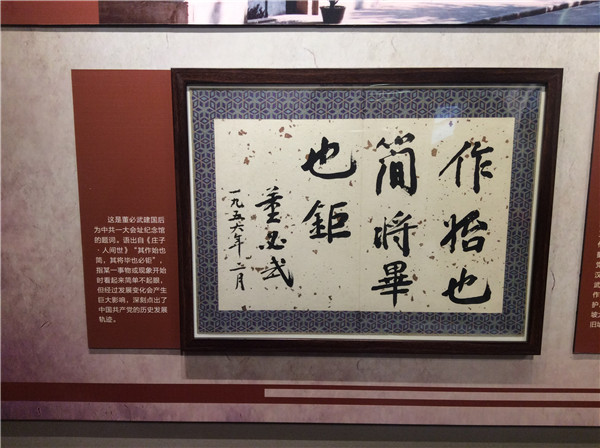 作始也
簡將畢
也鉅
董必武
一九五六年二月
这是董必武建国后
为中共一大会址纪念馆
的题词。语出自《庄子
·人间世》“其作始也
简，其将毕也必钜”，
指某一事物或现象开始
时看起来简单不起眼，
但经过发展变化会产生
巨大影响，深刻点出了
中国共产党的历史发展
轨迹。
汉
武
作
护，